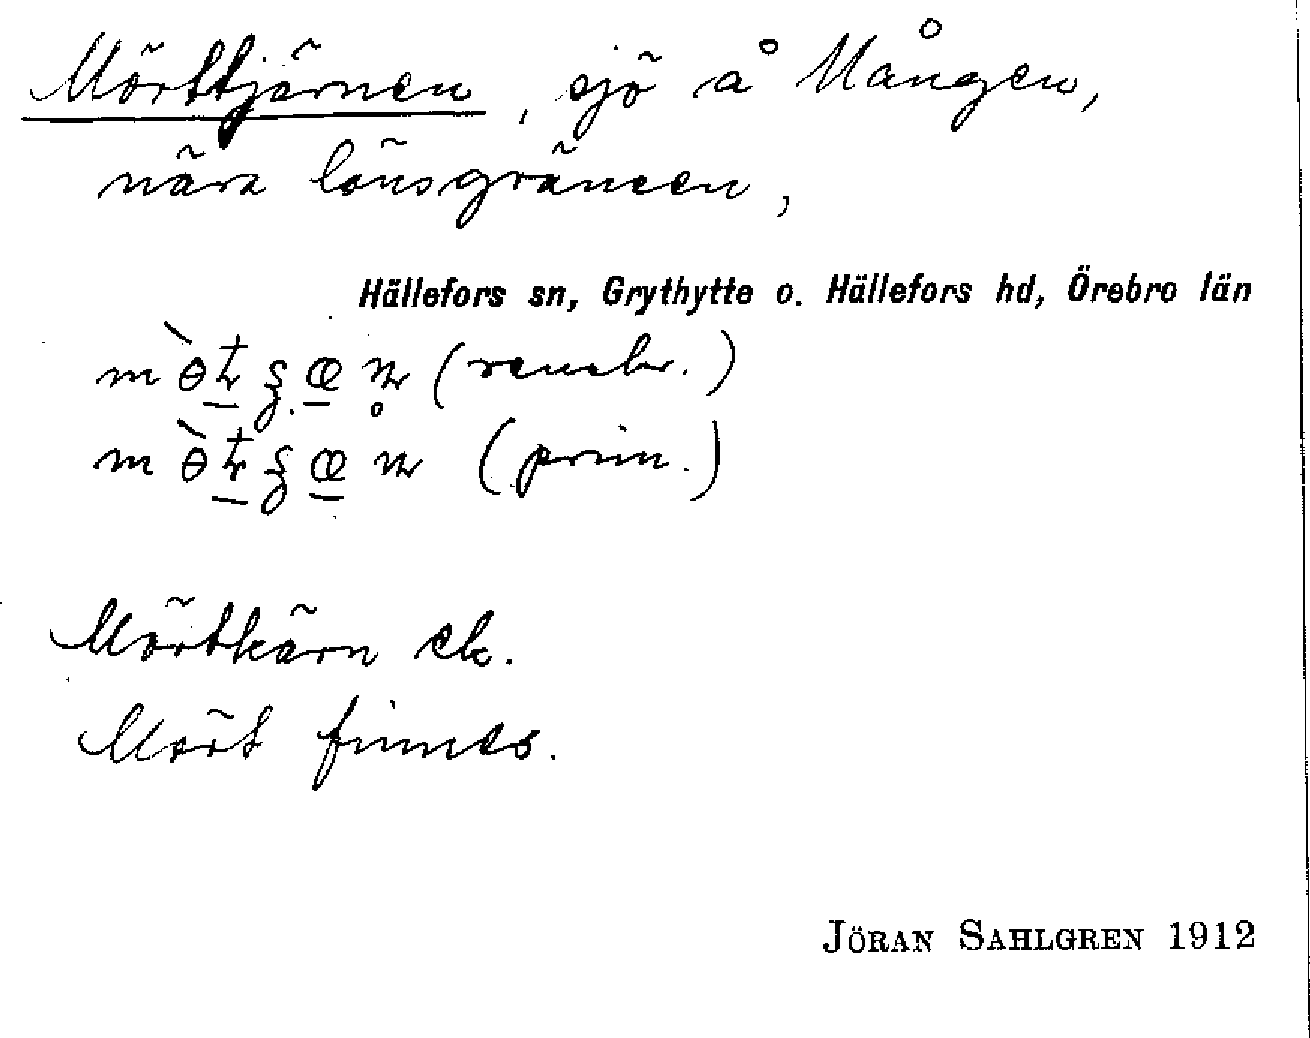 Mörttjärnen, sjö å Mången,
nära länsgränsen,
Hällefors sn, Grythytte o. Hällefors hd, Örebro län
(prim.)
Mörtkärn ek.
Mört finnes.
JÖRAN SAHLGREN 1912